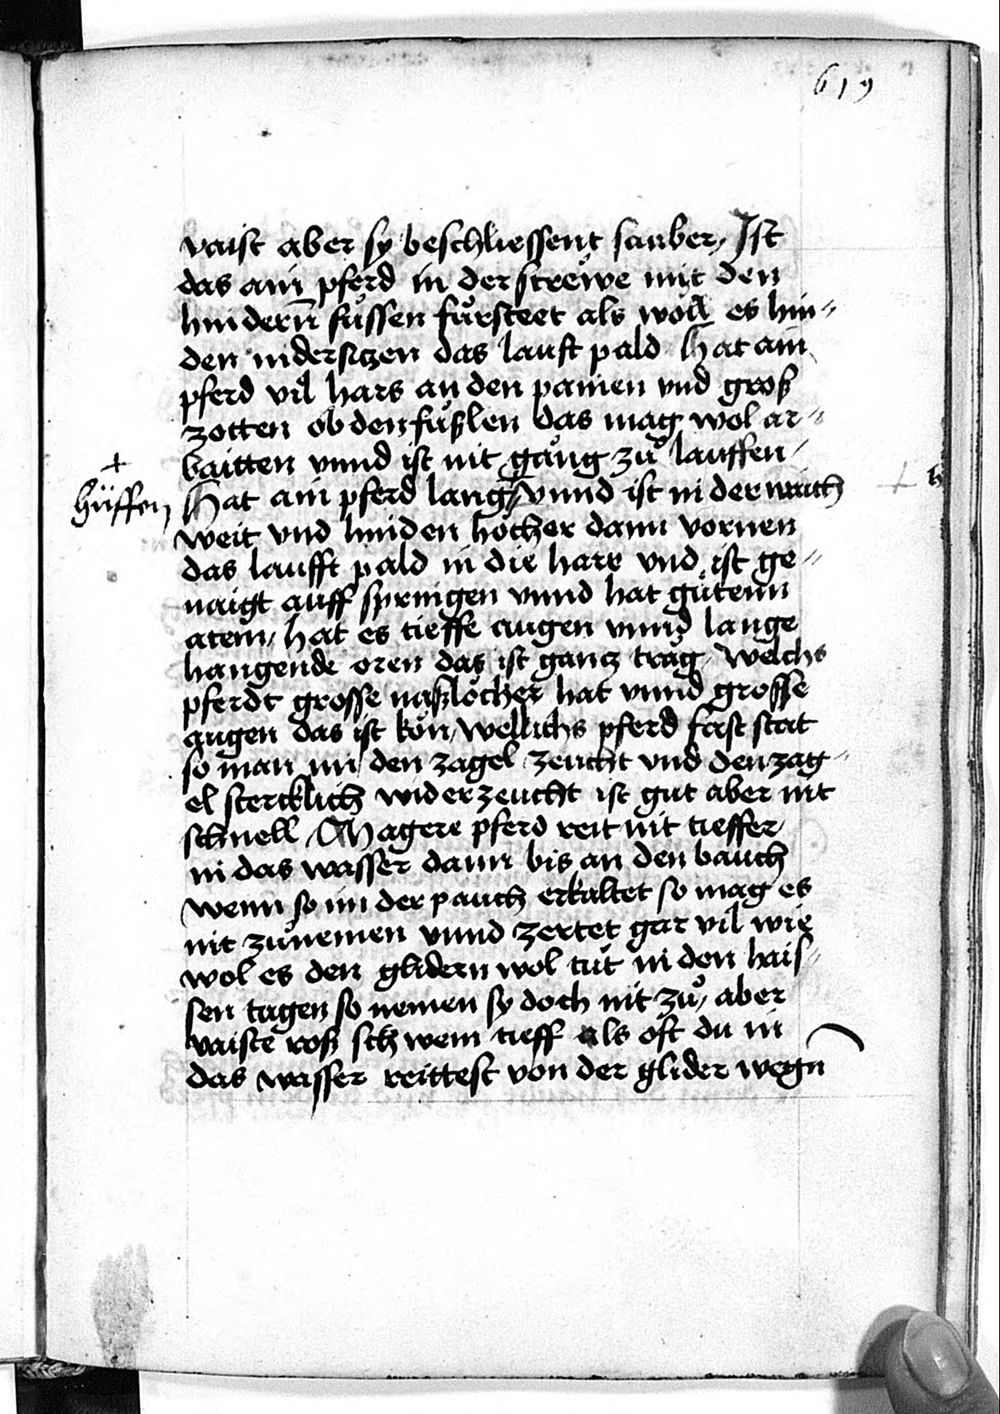 619
vaist aber sy beschliessent sauber, Ist
das ain pferd in der strewe mit den
hindern̄ fůssen fůrsteet als wöll es hin〃
den nidersitzen das lauft pald Hat ain
pferd vil hars an den painen vnd groß
zotten ob den fůßlen das mag wol ar〃
baitten vnnd ist nit gäng zů lauffen /
+
hüffen
Hat ain pferd lang vnnd ist in der waich
weit vnd hinden höcher dann vornen
das laufft pald in die harr vnd ist ge〃
naigt auff springen vnnd hat gůtenn
atem, hat es tieffe augen vnnd lange
hangende oren das ist gantz träg, Welchs
pferdt grosse naßlöcher hat vnnd grosse
augen das ist kön, Wellichs pferd fast stat
so man im den zagel zeucht vnd den zag〃
el stercklich widerzeucht ist gut aber nit
schnell / Magere pferd reit nit tieffer
in das wasser dann bis an den bauch
wenn so im der pauch erkaltet so mag es
nit zůnemen vnnd zertet gar vil wie
wol es den glidern wol tůt in den hais〃
sen tagen so nemen sy doch nit zů, aber
vaiste roß schwem tieff als oft du in
das wasser reittest von der glider wegn̄